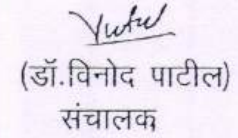 (डॉ.विनोद पाटील)
संचालक